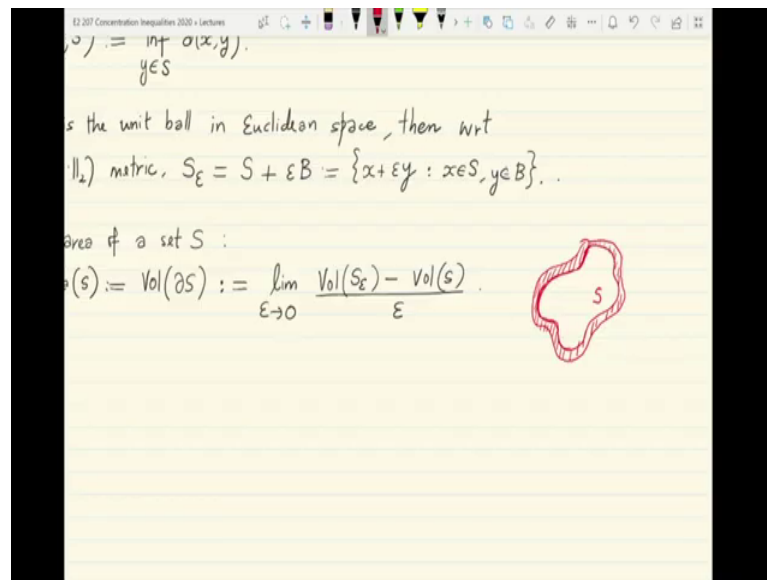 E2 207 Concentration Inequalities 2020 » Lectures
,S) := inf d(x,y).
y∈S
s the unit ball in Euclidean space, then wrt
·||₂) metric, S_ε = S + εB := {x+εy : x∈S, y∈B}. .
area of a set S :
(S) := Vol(∂S) := lim_{ε→0} (Vol(S_ε) − Vol(S)) / ε .
S